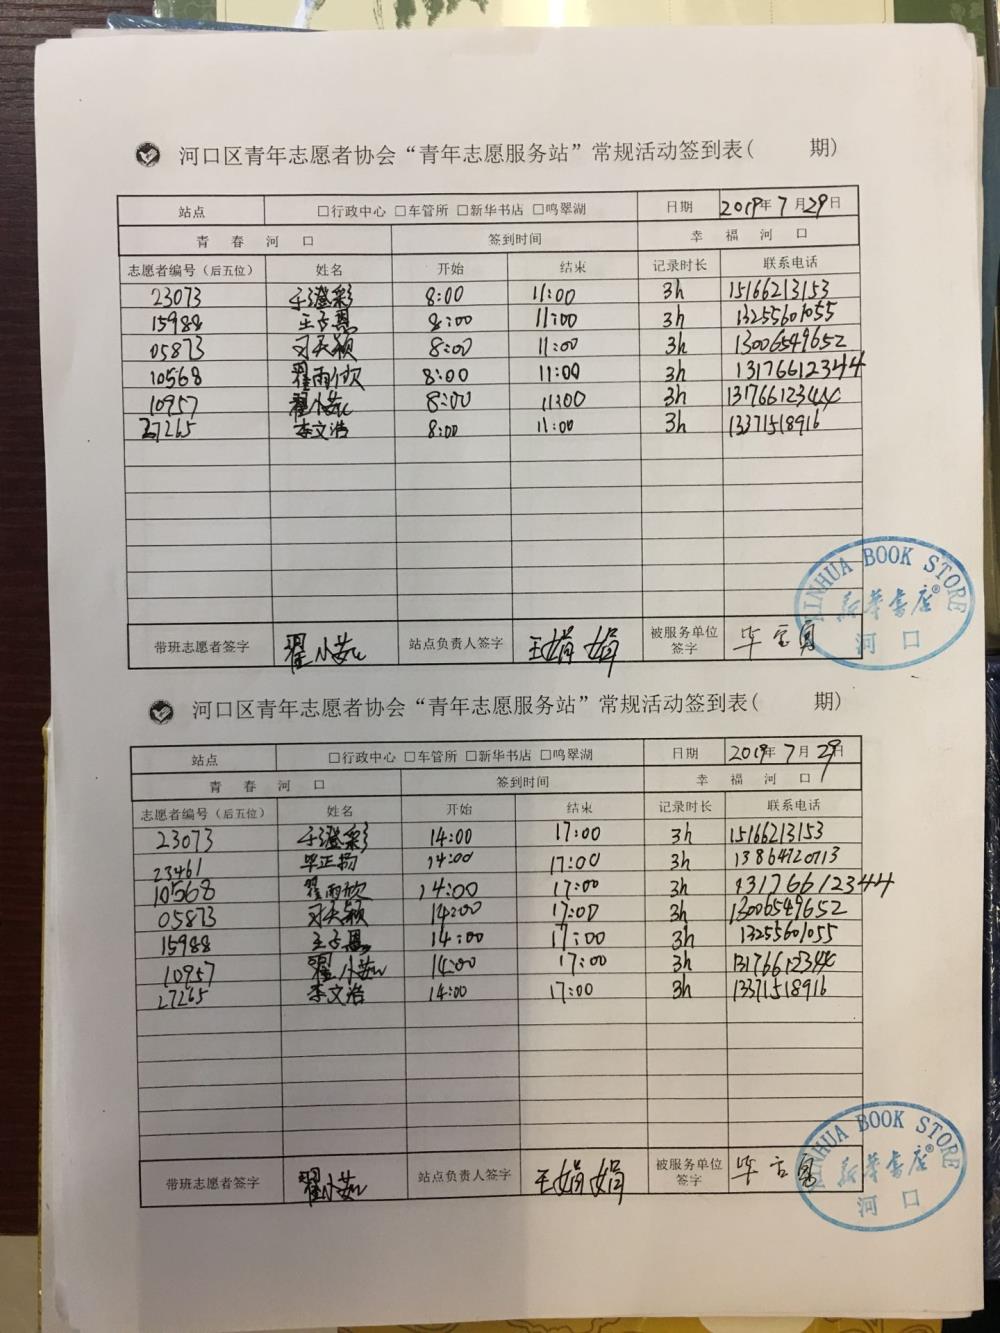 河口区青年志愿者协会“青年志愿服务站”常规活动签到表( 期)
站点 □行政中心 □车管所 □新华书店 □鸣翠湖 日期 2019年7月29日
青春河口 签到时间 幸福河口
志愿者编号（后五位） 姓名 开始 结束 记录时长 联系电话
23073 于澄彩 8:00 11:00 3h 15166213153
15988 王子恩 8:00 11:00 3h 13255601055
05873 刁天颖 8:00 11:00 3h 13006549652
10568 翟雨欣 8:00 11:00 3h 13176612344
10957 翟小茹 8:00 11:00 3h 13176612344
27265 李文浩 8:00 11:00 3h 13371518916
带班志愿者签字 翟小茹 站点负责人签字 王娟娟 被服务单位签字 毕
XINHUA BOOK STORE
新华书店®
河口
河口区青年志愿者协会“青年志愿服务站”常规活动签到表( 期)
站点 □行政中心 □车管所 □新华书店 □鸣翠湖 日期 2019年7月29日
青春河口 签到时间 幸福河口
志愿者编号（后五位） 姓名 开始 结束 记录时长 联系电话
23073 于澄彩 14:00 17:00 3h 15166213153
23461 毕正扬 14:00 17:00 3h 13864720713
10568 翟雨欣 14:00 17:00 3h 13176612344
05873 刁天颖 14:00 17:00 3h 13006549652
15988 王子恩 14:00 17:00 3h 13255601055
10957 翟小茹 14:00 17:00 3h 13176612344
27265 李文浩 14:00 17:00 3h 13371518916
带班志愿者签字 翟小茹 站点负责人签字 王娟娟 被服务单位签字 毕
XINHUA BOOK STORE
新华书店®
河口